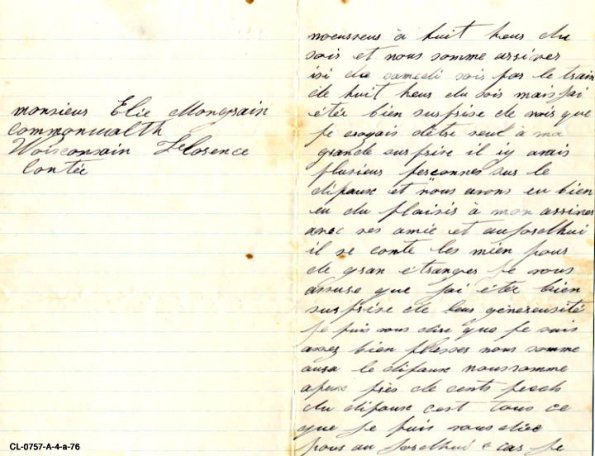 monsieur Elie Mongrain
Commonwalth
Woisconsain Florence
Contée
à huit heus du
sois et nous somme arrives
isi du samedi sois par le train
de huit heus du sois mais jai
étée bien surprise de voir que
je croyais dêtre seul à ma
grande surprise il iy avais
plusieur personnes sur le
dipaux et nous avons eu bien
eu du plaisis à mon assives
avec ses amie et aujosdhui
il se conte les mien pour
de gran étranges je vous
assure que jai étée bien
surprise de leus généreusité
je puis vous dire que je suis
assez bien plesses nous somme
le dipaux noussomme
apeux près de cents
du dipaux cest tous ce
que je puis vous dire
pous au josdhui car je
CL-0757-A-4-a-76